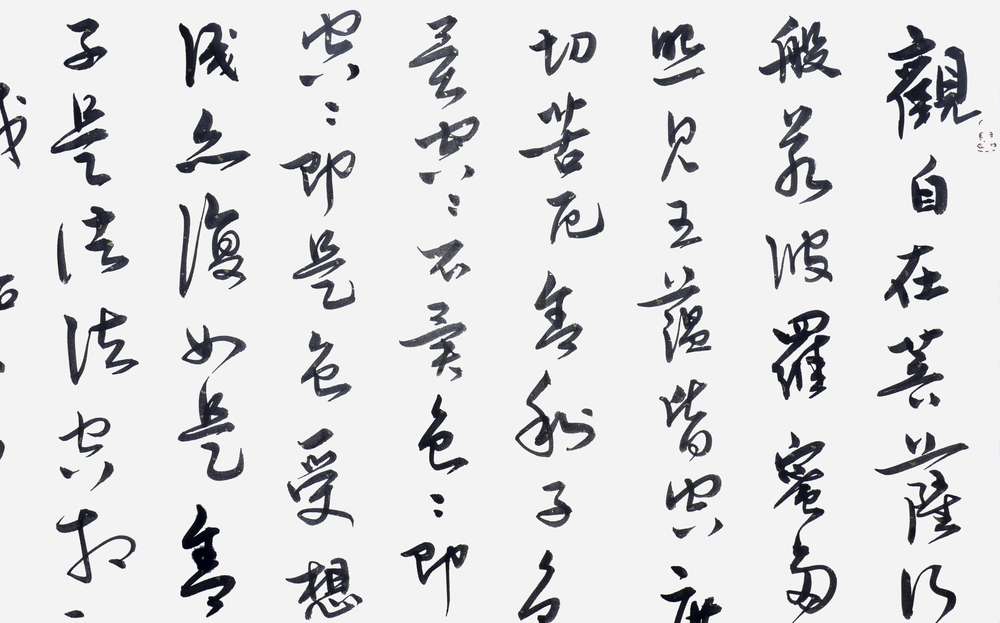 觀自在菩薩行
般若波羅蜜多
照見五蘊皆空度
切苦厄舍利子色
異空〻不異色〻即
空〻即是色受想
識亦復如是舍
子是諸法空相